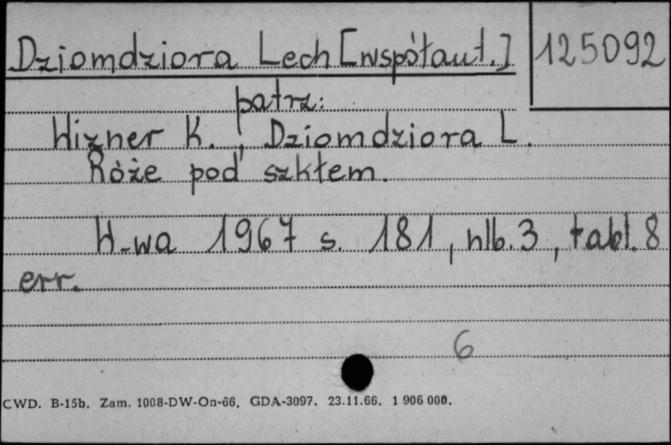 Dziomdziora Lech [współaut.]
125092
patrz:
Wizner K., Dziomdziora L.
Róże pod szkłem.
W-wa 1967 s. 181, nlb. 3, tabl. 8
err.
6
CWD. B-15b. Zam. 1008-DW-On-66, GDA-3097. 23.11.66. 1 906 000.